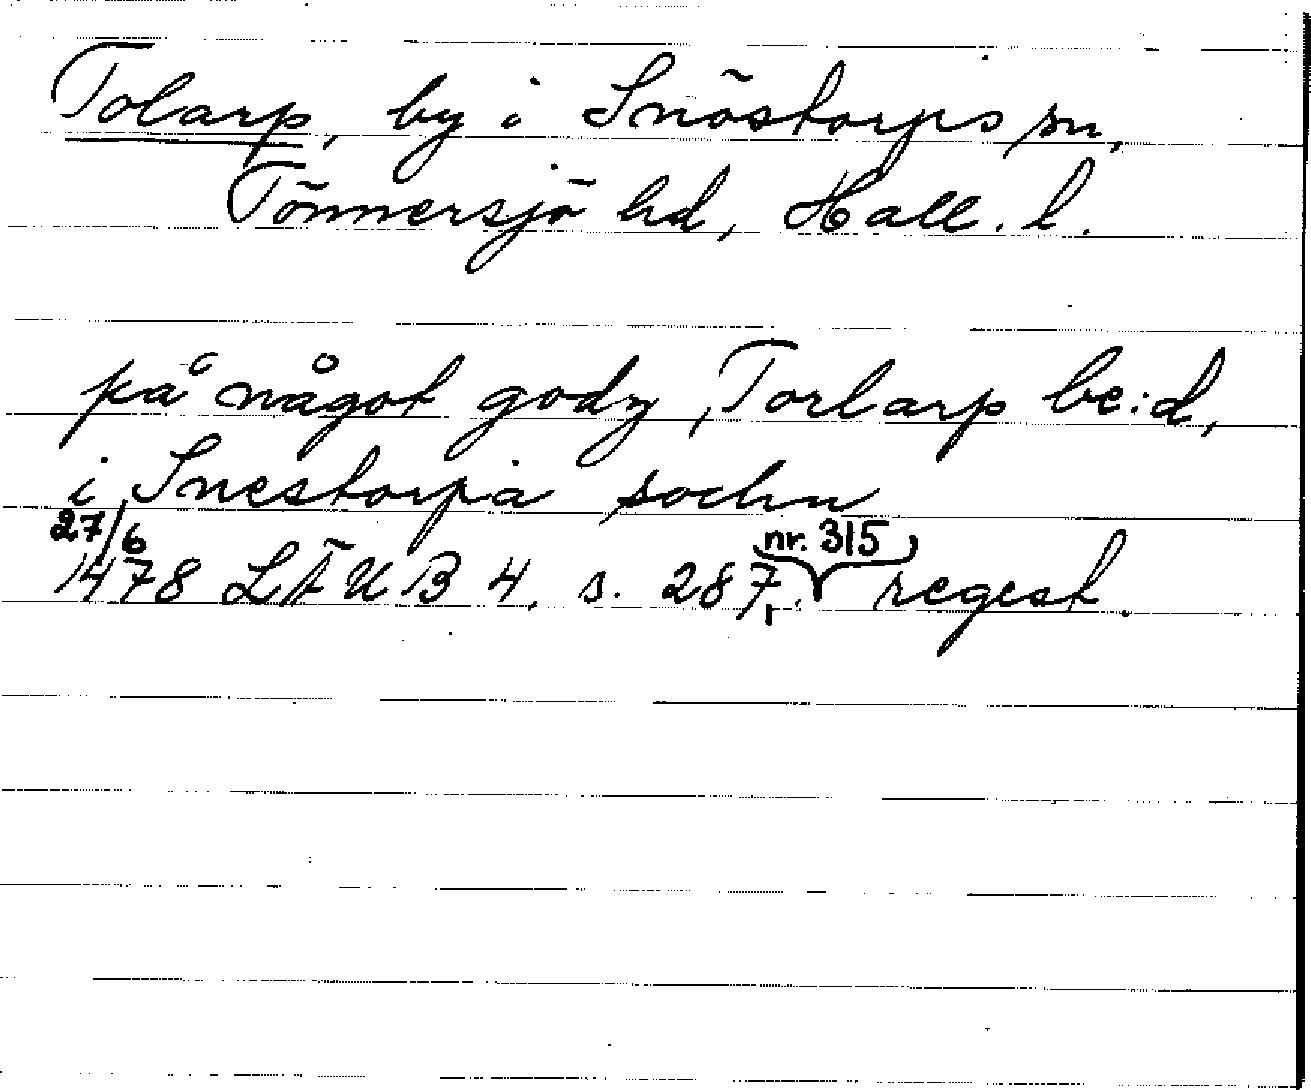 Tolarp, by i Snöstorps sn,
Tönnersjö hd, Hall. l.
på något godz, Torlarp be:d,
i Snestorpa sochn
27/6
1478 LÄUB 4, s. 287, nr. 315 regest.